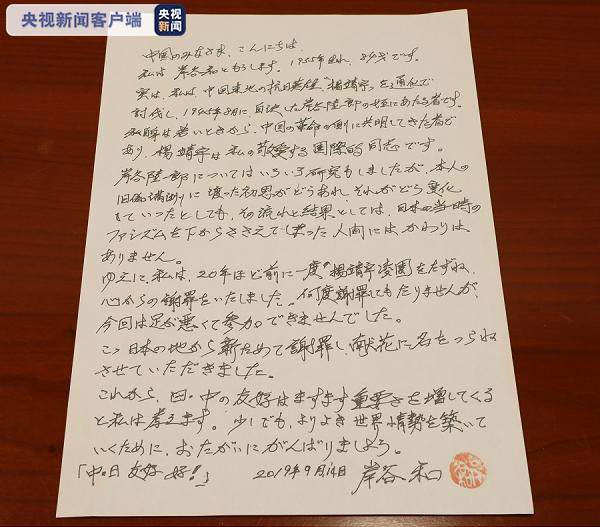 央视新闻客户端
央视新闻
中国のみなさま、こんにちは。
私は岸谷和ともうします。1955年生れ、84才です。
実は、私は中国東北の抗日英雄"楊靖宇"を通化で
討伐し、1945年8月に自決した岸谷隆一郎の姪にあたる者です。
私自身は若いときから、中国の革命の側に共鳴してきた者で
あり、楊靖宇は私の敬愛する国際的同志です。
岸谷隆一郎についてはいろいろ研究もしましたが、本人の
旧偽満州に壊った初思がどうあれ、それがどう変化
していったとしても、その流れと結果としては、日本の当時の
ファシズムを下からささえてしまった人間には、かわりは
ありません。
ゆえに、私は、20年ほど前に一度"楊靖宇凌園をたずね、
心からの謝罪をいたしました。何度謝罪してもたりませんが、
今回は足が悪くて参加できませんでした。
この日本の地から新ためて謝罪し、献花に名をつらね
させていただきました。
これから、日・中の友好はますます重要さを増してくる
と私は考えます。少しでも、よりよき世界情勢を築いて
いくために、おたがいにがんばりましょう。
「中・日 友好 好!」 2019年9月14日 岸谷 和